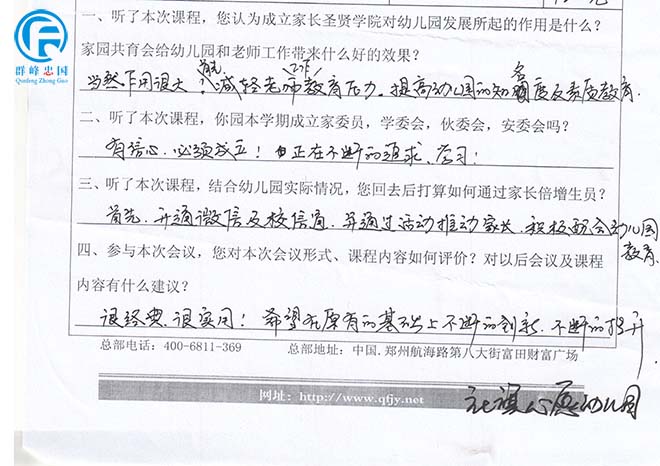 群峰忠国
Qunfeng Zhong Guo
一、听了本次课程，您认为成立家长圣贤学院对幼儿园发展所起的作用是什么？
家园共育会给幼儿园和老师工作带来什么好的效果？
当然作用很大，首先，减轻老师教育压力。提高幼儿园的知名度及素质教育.
二、听了本次课程，你园本学期成立家委员，学委会，伙委会，安委会吗？
有信心.必须成立！且正在不断的追求、学习！
三、听了本次课程，结合幼儿园实际情况，您回去后打算如何通过家长倍增生员？
首先.开通微信及校信通.并通过活动推动家长.积极配合幼儿园
教育.
四、参与本次会议，您对本次会议形式、课程内容如何评价？对以后会议及课程
内容有什么建议？
很经典.很实用！希望在原有的基础上不断的创新.不断的提升
总部电话：400-6811-369 总部地址：中国.郑州航海路第八大街富田财富广场
网址：http://www.qfjy.net
社旗心愿幼儿园